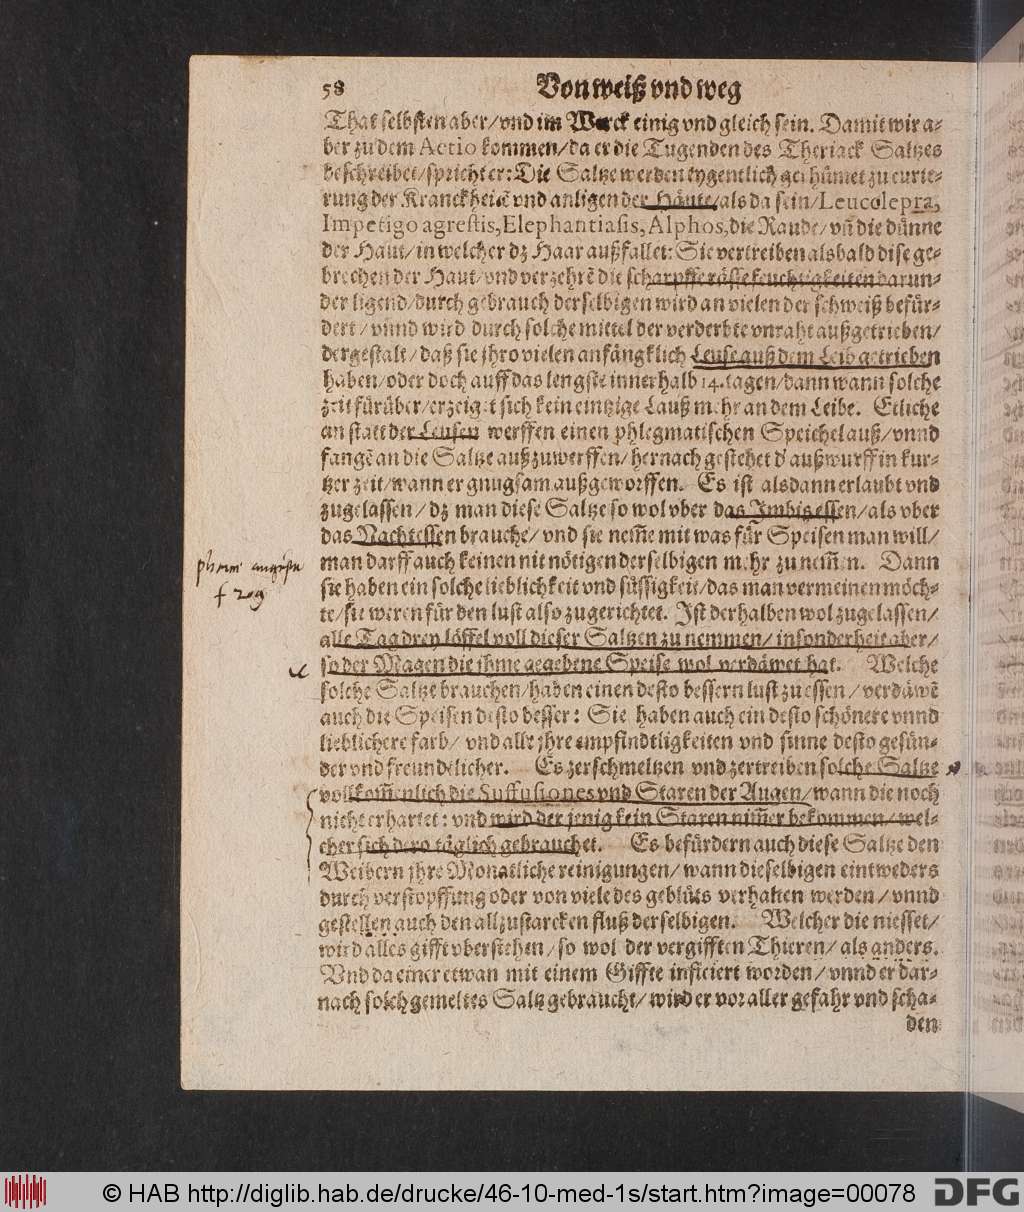 58 Von weiß vnd weg
That selbsten aber/vnd im Werck einig vnd gleich sein. Damit wir a-
ber zu dem Actio kommen/da er die Tugenden des Theriack Saltzes
beschreibet/spricht er: Die Saltze werden eygentlich gerhümet zu curie-
rung der Kranckheitẽ vnd anligen der Häute/als da sein/Leucolepra,
Impetigo agrestis, Elephantiasis, Alphos, die Raude/vñ die dünne
der Haut/in welcher dz Haar außfallet: Sie vertreiben alsbald dise ge-
brechen der Haut/vnd verzehrẽ die scharpffe räste feuchtigkeiten darun-
der ligend/durch gebrauch derselbigen wird an vielen der schweiß befür-
dert/vnnd wird durch solche mittel der verderbte vnraht außgetrieben/
dergestalt/daß sie jhro vielen anfängklich Leuse auß dem Leib getrieben
haben/oder doch auff das lengste innerhalb 14. tagen/dann wann solche
zeit fürüber/erzeiget sich kein eintzige Lauß mehr an dem Leibe. Etliche
an statt der Leusen werffen einen phlegmatischen Speichel auß/vnnd
fangẽ an die Saltze außzuwerffen/hernach gestehet d' außwurff in kur-
tzer zeit/wann er gnugsam außgeworffen. Es ist alsdann erlaubt vnd
zugelassen/dz man diese Saltze so wol vber das Imbisessen/als vber
das Nachtessen brauche/vnd sie neme mit was für Speisen man will/
man darff auch keinen nit nötigen derselbigen mehr zu nemen. Dann
sie haben ein solche lieblichkeit vnd süssigkeit/das man vermeinen möch-
te/sie weren für den lust also zugerichtet. Ist derhalben wol zugelassen/
alle Tag drey löffel voll dieser Saltzen zu nemmen/insonderheit aber/
so der Magen die jhme gegebene Speise wol verdäwet hat. Welche
solche Saltze brauchen/haben einen desto bessern lust zu essen/verdäwẽ
auch die Speisen desto besser: Sie haben auch ein desto schönere vnnd
lieblichere farb/vnd alle jhre empfindtligkeiten vnd sinne desto gesün-
der vnd freundtlicher. Es zerschmeltzen vnd zertreiben solche Saltze
vollkom̃enlich die Suffusiones vnd Staren der Augen/wann die noch
nicht erhartet: vnd wird der jenig kein Staren nim̃er bekommen/wel-
cher sich dero täglich gebrauchet. Es befürdern auch diese Saltze den
Weibern jhre Monatliche reinigungen/wann dieselbigen eintweders
durch verstopffung oder von viele des geblüts verhalten werden/vnnd
gestellen auch den allzustarcken fluß derselbigen. Welcher die niesset/
wird alles gifft vberstehen/so wol der vergifften Thieren/als anders.
Vnd da einer etwan mit einem Giffte inficiert worden/vnnd er dar-
nach solch gemeltes Saltz gebraucht/wird er vor aller gefahr vnd scha-
den
© HAB http://diglib.hab.de/drucke/46-10-med-1s/start.htm?image=00078 DFG